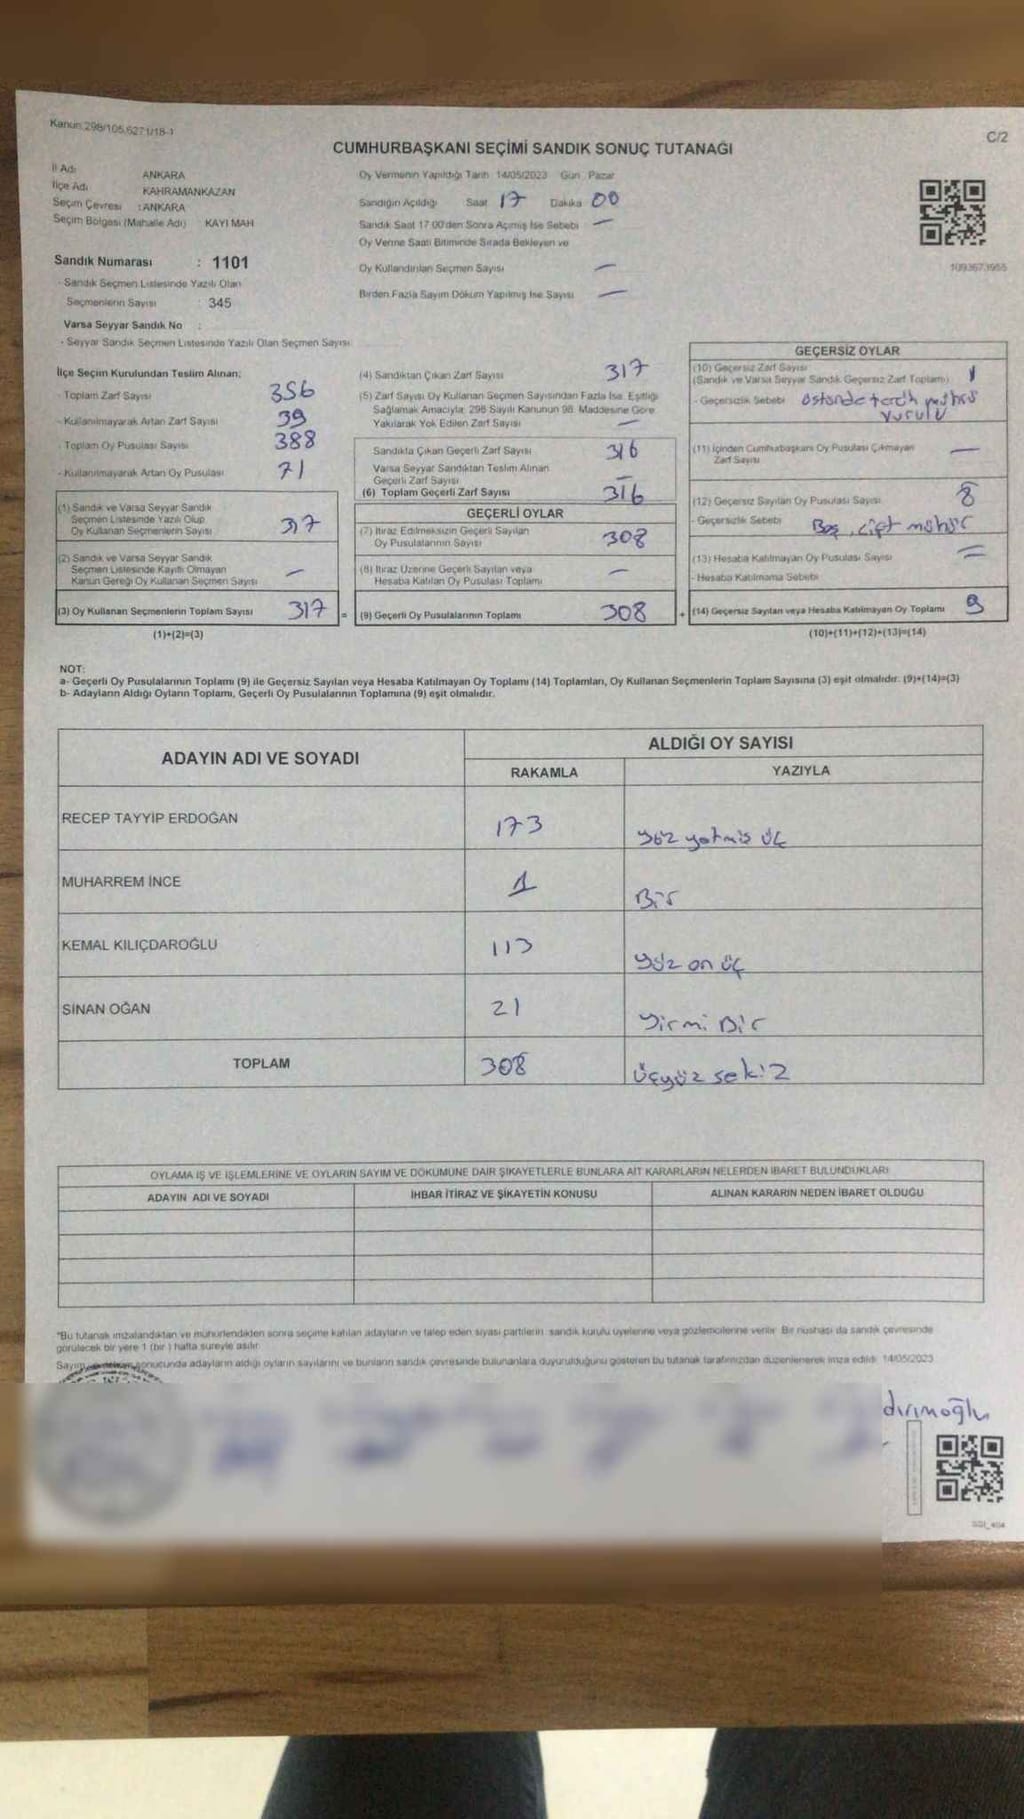 Kanun:298/105,6271/18-1
C/2
CUMHURBAŞKANI SEÇİMİ SANDIK SONUÇ TUTANAĞI
İl Adı ANKARA
İlçe Adı KAHRAMANKAZAN
Seçim Çevresi : ANKARA
Seçim Bölgesi (Mahalle Adı) KAYI MAH
Sandık Numarası : 1101
- Sandık Seçmen Listesinde Yazılı Olan
Seçmenlerin Sayısı 345
Varsa Seyyar Sandık No :
- Seyyar Sandık Seçmen Listesinde Yazılı Olan Seçmen Sayısı
Oy Vermenin Yapıldığı Tarih 14/05/2023 Gün Pazar
Sandığın Açıldığı Saat 17 Dakika 00
Sandık Saat 17.00'den Sonra Açılmış İse Sebebi —
Oy Verme Saati Bitiminde Sırada Bekleyen ve
Oy Kullandırılan Seçmen Sayısı —
Birden Fazla Sayım Döküm Yapılmış İse Sayısı —
1093673955
İlçe Seçim Kurulundan Teslim Alınan;
- Toplam Zarf Sayısı 356
- Kullanılmayarak Artan Zarf Sayısı 39
- Toplam Oy Pusulası Sayısı 388
- Kullanılmayarak Artan Oy Pusulası 71
(1) Sandık ve Varsa Seyyar Sandık
Seçmen Listesinde Yazılı Olup
Oy Kullanan Seçmenlerin Sayısı 317
(2) Sandık ve Varsa Seyyar Sandık
Seçmen Listesinde Kayıtlı Olmayan
Kanun Gereği Oy Kullanan Seçmen Sayısı —
(3) Oy Kullanan Seçmenlerin Toplam Sayısı 317 =
(1)+(2)=(3)
(4) Sandıktan Çıkan Zarf Sayısı 317
(5) Zarf Sayısı Oy Kullanan Seçmen Sayısından Fazla İse, Eşitliği
Sağlamak Amacıyla; 298 Sayılı Kanunun 98. Maddesine Göre
Yakılarak Yok Edilen Zarf Sayısı —
Sandıkta Çıkan Geçerli Zarf Sayısı 316
Varsa Seyyar Sandıktan Teslim Alınan
Geçerli Zarf Sayısı —
(6) Toplam Geçerli Zarf Sayısı 316
GEÇERLİ OYLAR
(7) İtiraz Edilmeksizin Geçerli Sayılan
Oy Pusulalarının Sayısı 308
(8) İtiraz Üzerine Geçerli Sayılan veya
Hesaba Katılan Oy Pusulası Toplamı —
(9) Geçerli Oy Pusulalarının Toplamı 308 +
GEÇERSİZ OYLAR
(10) Geçersiz Zarf Sayısı
(Sandık ve Varsa Seyyar Sandık Geçersiz Zarf Toplamı) 1
- Geçersizlik Sebebi üstünde tercih mührü
vurulu
(11) İçinden Cumhurbaşkanı Oy Pusulası Çıkmayan
Zarf Sayısı —
(12) Geçersiz Sayılan Oy Pusulası Sayısı 8
- Geçersizlik Sebebi Boş, çift mühür
(13) Hesaba Katılmayan Oy Pusulası Sayısı —
- Hesaba Katılmama Sebebi —
(14) Geçersiz Sayılan veya Hesaba Katılmayan Oy Toplamı 9
(10)+(11)+(12)+(13)=(14)
NOT:
a- Geçerli Oy Pusulalarının Toplamı (9) ile Geçersiz Sayılan veya Hesaba Katılmayan Oy Toplamı (14) Toplamları, Oy Kullanan Seçmenlerin Toplam Sayısına (3) eşit olmalıdır. (9)+(14)=(3)
b- Adayların Aldığı Oyların Toplamı, Geçerli Oy Pusulalarının Toplamına (9) eşit olmalıdır.
ADAYIN ADI VE SOYADI
ALDIĞI OY SAYISI
RAKAMLA YAZIYLA
RECEP TAYYİP ERDOĞAN 173 yüz yetmiş üç
MUHARREM İNCE 1 Bir
KEMAL KILIÇDAROĞLU 113 yüz on üç
SİNAN OĞAN 21 yirmi Bir
TOPLAM 308 üçyüz sekiz
OYLAMA İŞ VE İŞLEMLERİNE VE OYLARIN SAYIM VE DÖKÜMÜNE DAİR ŞİKAYETLERLE BUNLARA AİT KARARLARIN NELERDEN İBARET BULUNDUKLARI
ADAYIN ADI VE SOYADI İHBAR İTİRAZ VE ŞİKAYETİN KONUSU ALINAN KARARIN NEDEN İBARET OLDUĞU
*Bu tutanak imzalandıktan ve mühürlendikten sonra seçime katılan adayların ve talep eden siyasi partilerin sandık kurulu üyelerine veya gözlemcilerine verilir. Bir nüshası da sandık çevresinde
görülecek bir yere 1 (bir ) hafta süreyle asılır.
Sayım sonucunda adayların aldığı oyların sayılarını ve bunların sandık çevresinde bulunanlara duyurulduğunu gösteren bu tutanak tarafımızdan düzenlenerek imza edildi. 14/05/2023
dırımoğlu